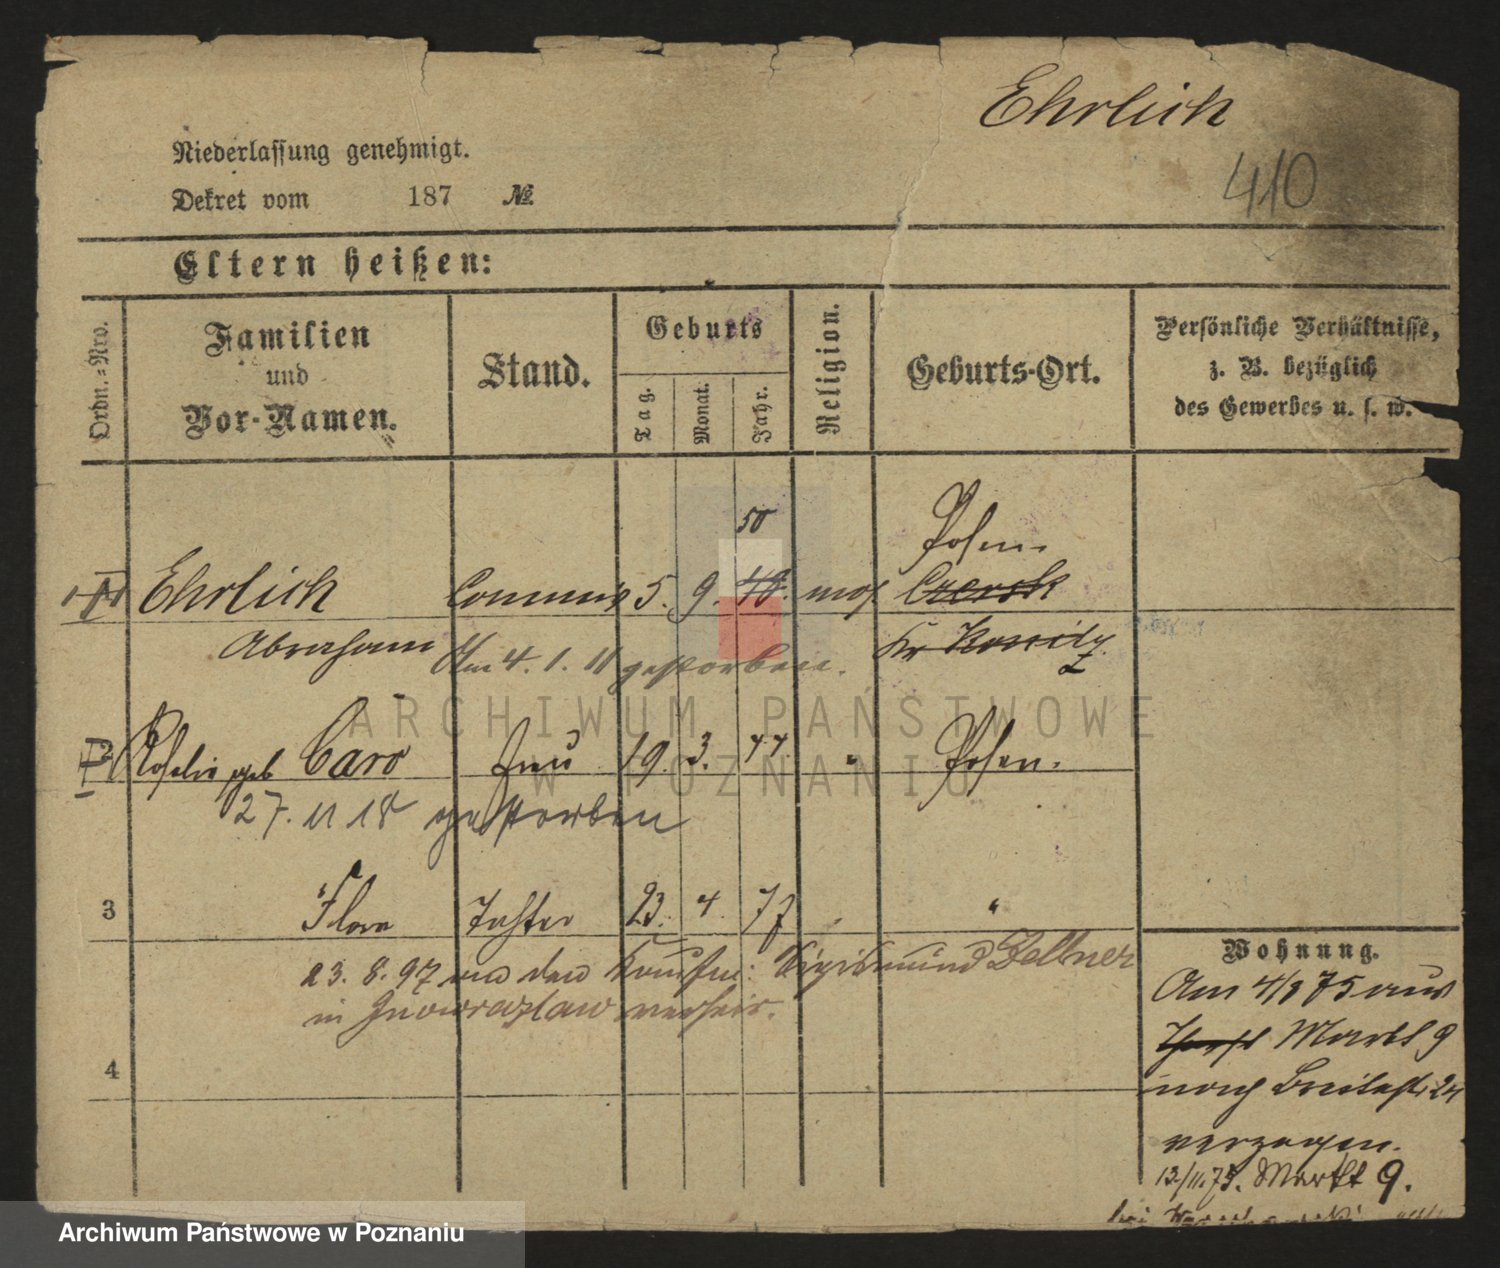 Ehrlich
410
Niederlassung genehmigt.
Dekret vom 187 №
Eltern heißen:
Ordn.=Nro.
Familien
und
Vor-Namen.
Stand.
Geburts
Tag.
Monat.
Jahr.
Religion.
Geburts-Ort.
Persönliche Verhältnisse,
z. B. bezüglich
des Gewerbes u. s. w.
50
Posen.
Ehrlich Commis 5. 9. 48. mos. Czersk
Abraham Kr Konitz
Am 4. 1. 11 gestorben.
2 Rosalie geb Caro Frau 19. 3. 44. " Posen.
27. 11 18 gestorben
3 Flora Tochter 23. 4. 77 "
23. 8. 97 an den Kaufm: Sigismund Dellner
in Inowrazlaw verheir.
4
Wohnung.
Am 4/3 75 aus
Markt 9
nach Breitestr. 24
verzogen.
13/11.75. Markt 9.
bei
ARCHIWUM PAŃSTWOWE
W POZNANIU
Archiwum Państwowe w Poznaniu